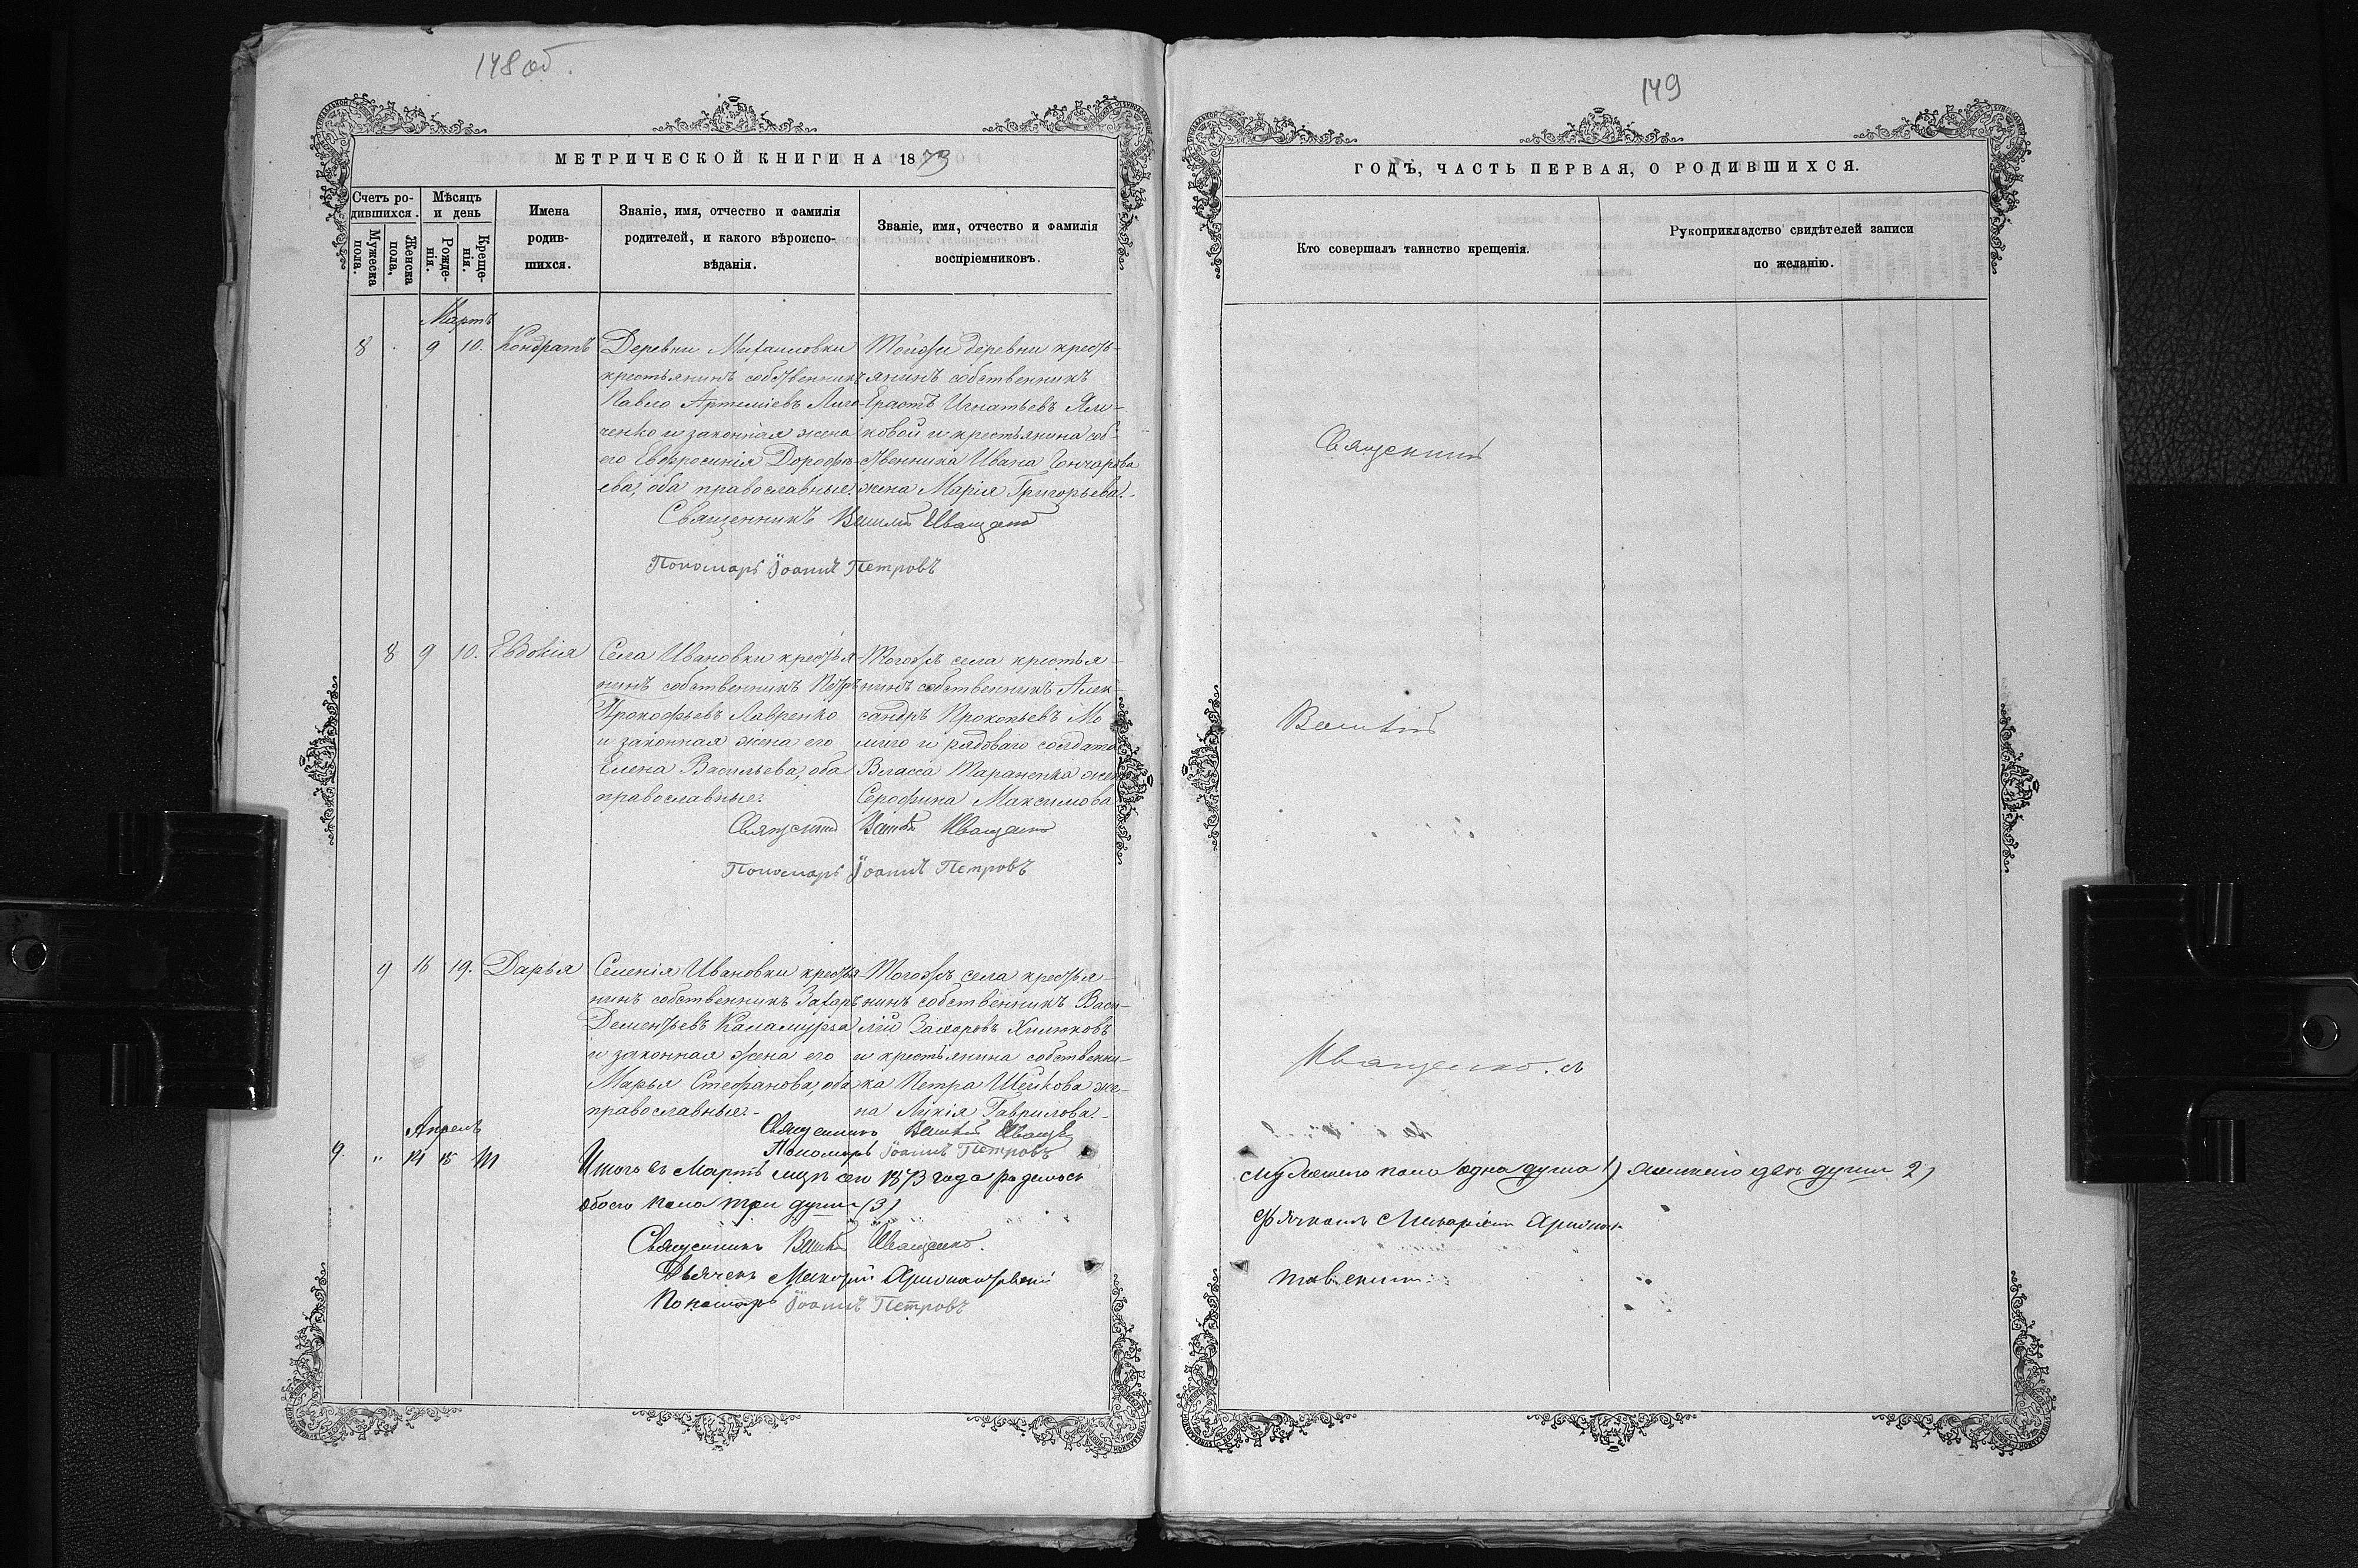 148 об.
МЕТРИЧЕСКОЙ КНИГИ НА 1873
Счетъ родившихся.
Мѣсяцъ и день
Имена родившихся.
Званіе, имя, отчество и фамилія родителей, и какого вѣроисповѣданія.
Званіе, имя, отчество и фамилія воспріемниковъ.
Мужеска пола.
Женска пола,
Рожденія.
Крещенія.
Мартъ
8 9 10. Кондратъ
Деревни Михаиловки
крестьянинъ собственникъ
Павло Артеміевъ
и законная жена
его Евфросинія Дорофѣ-
ева, оба православные.
Тойже деревни кресть-
янинъ собственникъ
Ерастъ Игнатьевъ
и крестьянина соб-
ственника Ивана Гончарова
жена Марія Григорьева.
Священникъ Василій Иващенко
Пономарь Іоаннъ Петровъ
8 9 10. Евдокія
Села Ивановки крестья-
нинъ собственникъ Петръ
Прокофьевъ Лавренко
и законная жена его
Елена Васильева, оба
православные.
Тогожъ села крестья-
нинъ собственникъ Алек-
сандръ Прокопьевъ
и рядоваго солдата
Власса Тараненка жена
Серофима Максимова
Священникъ Василій Иващенко
Пономарь Іоаннъ Петровъ
9 19. Дарья
Селенія Ивановки крестья-
нинъ собственникъ Захаръ
Дементьевъ Каламурза
и законная жена его
Марья Стефанова, оба
православные.
Тогожъ села крестья-
нинъ собственникъ Васи-
лій Захаровъ Хилюковъ
и крестьянина собственни-
ка Петра Шейкова же-
на Лукія Гаврилова.
Священникъ Василій Иващенко
Пономарь Іоаннъ Петровъ
Апрель
9. " 14 15
Итого въ Мартѣ мцѣ сего 1873 года родилось
обоего пола три души (3)
Священникъ Василій Иващенко.
Дьячекъ Макарій
Пономарь Іоаннъ Петровъ
149
ГОДЪ, ЧАСТЬ ПЕРВАЯ, О РОДИВШИХСЯ.
Кто совершалъ таинство крещенія.
Рукоприкладство свидѣтелей записи по желанію.
Священникъ
Василій
Иващенко. съ
мужескаго пола одна душа 1) женскаго двѣ души 2)